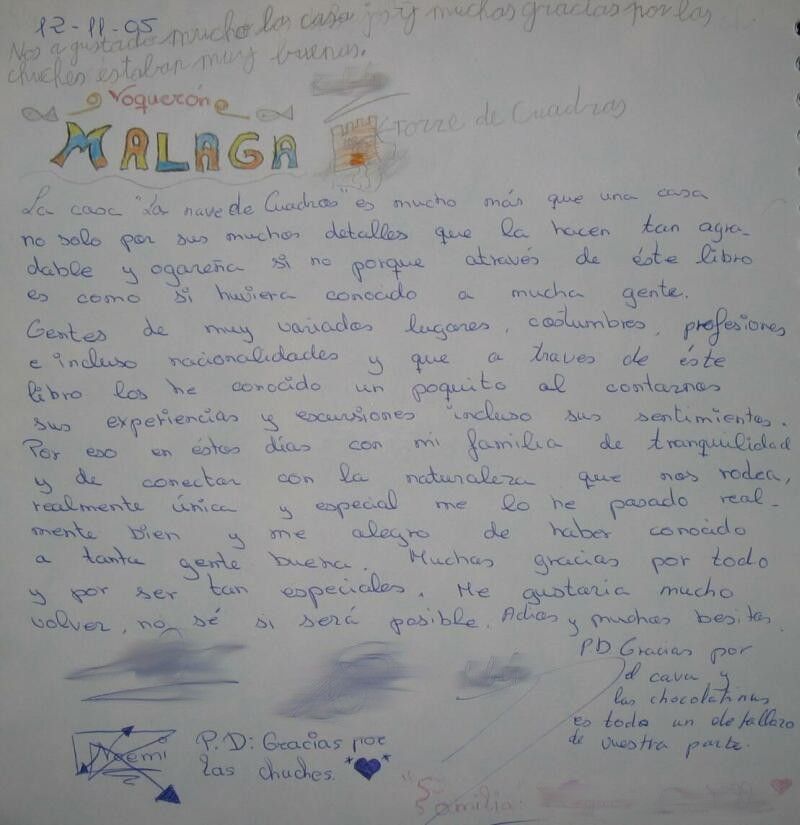 12-11-05
Nos a gustado mucho la casa y muchas gracias por las
chuches estaban muy buenas.
Voquerón
MALAGA
Torre de Cuadros
La casa "La nave de Cuadros" es mucho más que una casa
no solo por sus muchos detalles que la hacen tan agra-
dable y ogareña si no porque através de éste libro
es como si huviera conocido a mucha gente.
Gentes de muy variados lugares, costumbres, profesiones
e incluso nacionalidades y que a traves de éste
libro los he conocido un poquito al contarnos
sus experiencias y escursiones incluso sus sentimientos.
Por eso en éstos días con mi familia de tranquilidad
y de conectar con la naturaleza que nos rodea,
realmente única y especial me lo he pasado real-
mente bien y me alegro de haber conocido
a tanta gente buena. Muchas gracias por todo
y por ser tan especiales. Me gustaria mucho
volver, no sé si será posible. Adios y muchos besitos.
P.D Gracias por
el cava y
las chocolatinas
es todo un detallazo
de vuestra parte.
Noemi
P.D: Gracias por
las chuches.
"Familia: